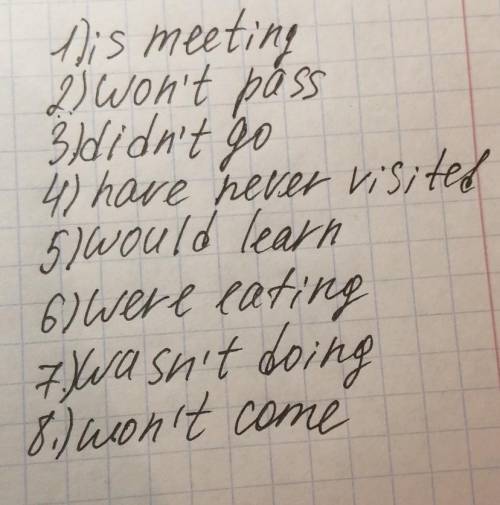 1.) is meeting
2) won't pass
3) didn't go
4) have never visited
5) would learn
6) were eating
7.) wasn't doing
8.) won't come